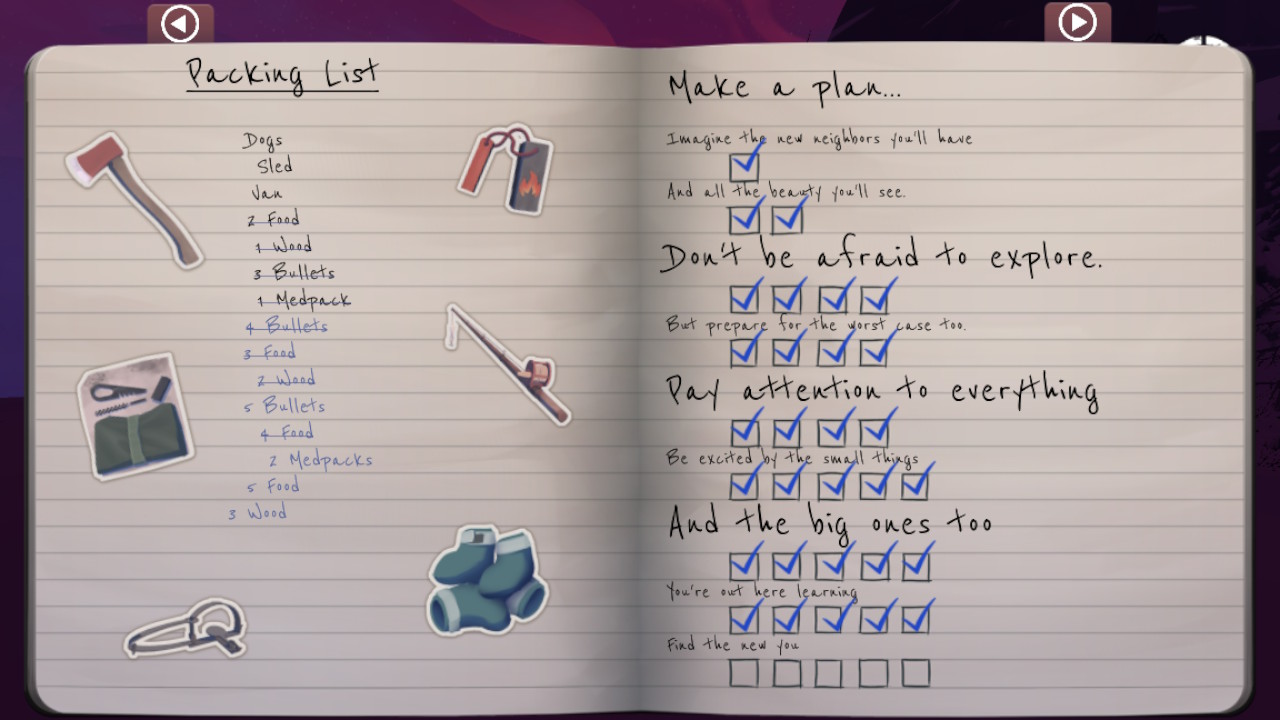 Packing List
Dogs
Sled
Van
2 Food
1 Wood
3 Bullets
1 Medpack
4 Bullets
3 Food
2 Wood
5 Bullets
4 Food
2 Medpacks
5 Food
3 Wood
Make a plan...
Imagine the new neighbors you'll have
And all the beauty you'll see.
Don't be afraid to explore.
But prepare for the worst case too.
Pay attention to everything
Be excited by the small things
And the big ones too
You're out here learning
Find the new you